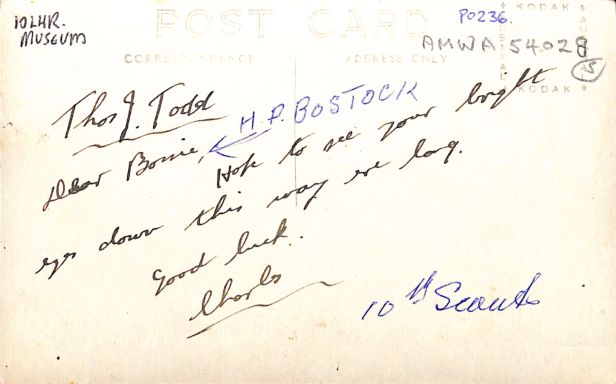 10LHR. MUSEUM
POST CARD
P0236.
KODAK
AMWA 54028
15
CORRESPONDENCE
ADDRESS ONLY
AUSTRALIA
KODAK
Thos J. Todd
H.P. BOSTOCK
Dear Bossie,
Hope to see your bright
eyes down this way ere long.
Good luck.
Charles
10th Scouts